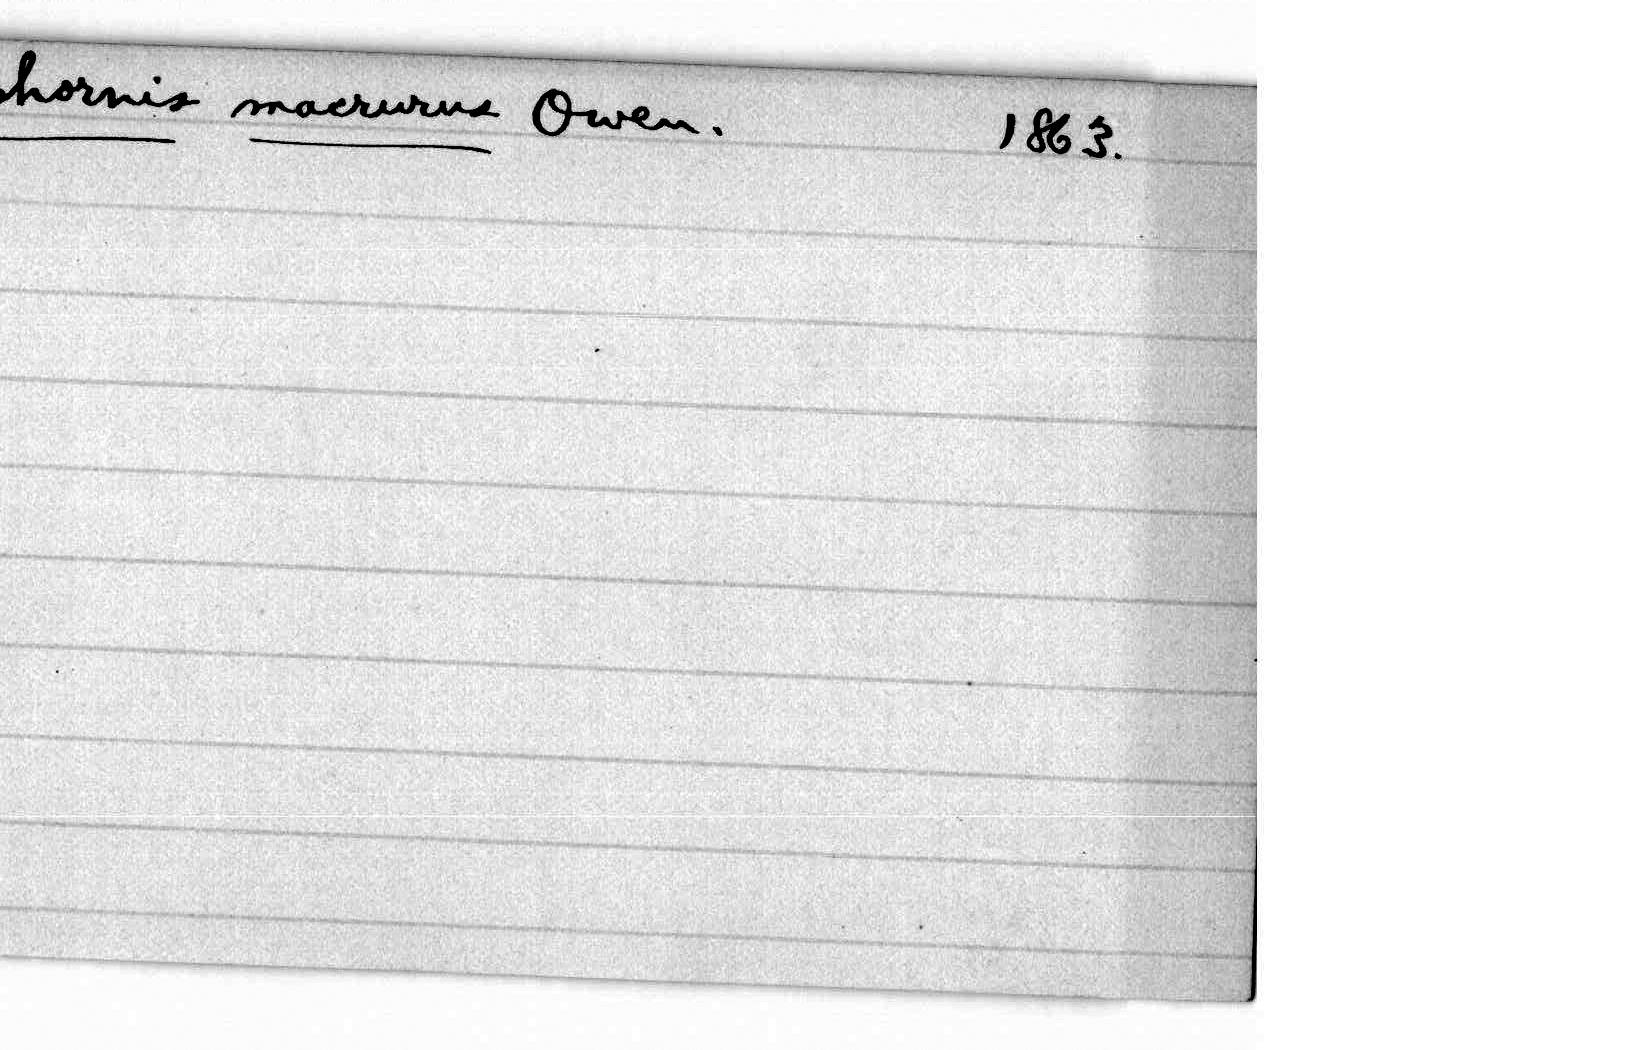 phornis macrurus Owen. 1863.